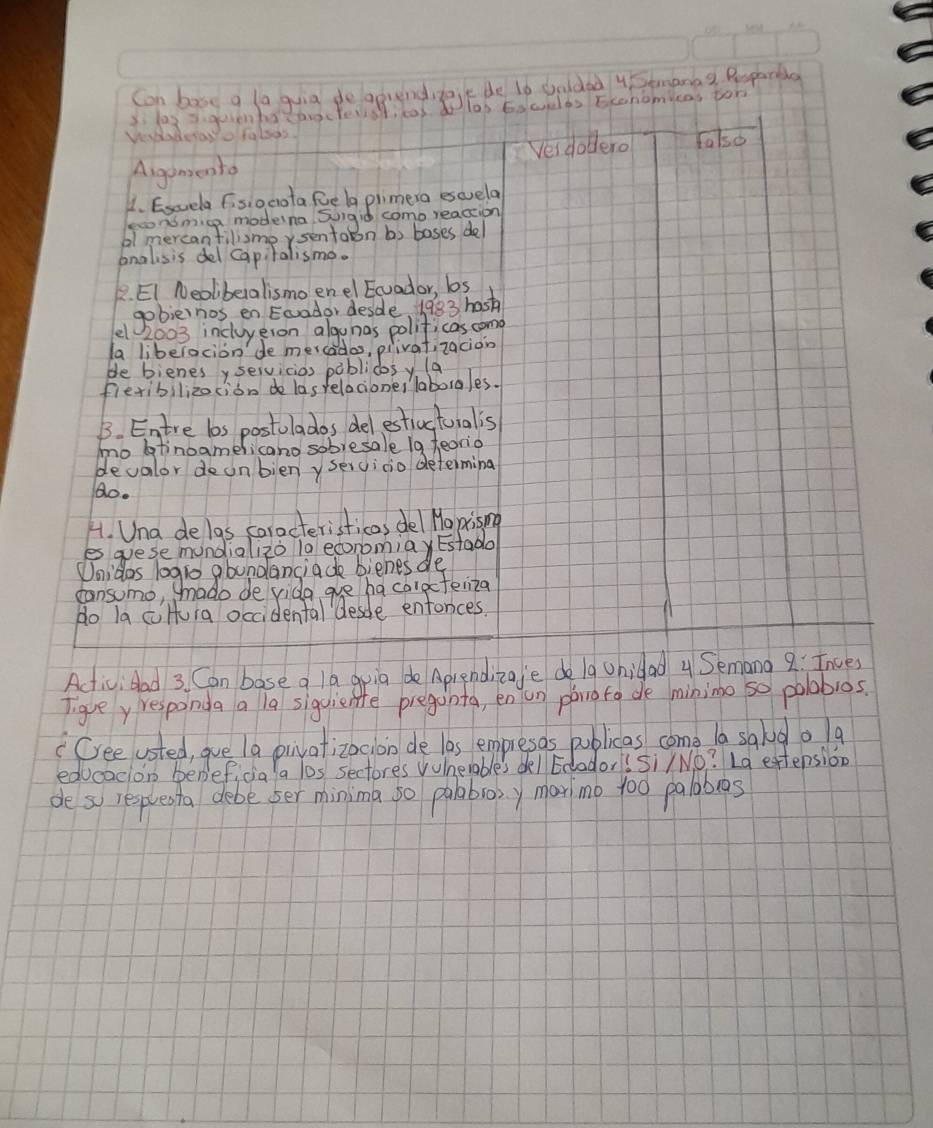 Con base a la guia de aprendizaje de la unidad 4, Semana 9. Responda
si las siguientes caracteristicas de las Escuelas Economicas son
Verdaderas o falsas.
Argumento Verdadero Falso
1. Escuela Fisiocrata fue la primera escuela
económica moderna. Surgió como reacción
al mercantilismo y sentaron las bases del
analisis del Capitalismo.
2. El Neoliberalismo en el Ecuador, los
gobiernos en Ecuador desde 1983 hasta
el 2003 incluyeron algunas politicas como
la liberación de mercados, privatización
de bienes y servicios públicos y la
flexibilización de las relaciones laborales.
3. Entre los postulados del estructuralis
mo latinoamericano sobresale la teoria
de valor de un bien y servicio determina
do.
4. Una de las caracteristicas del Marxismo
es que se mundializó la economia y Estado
Unidos logro abundancia de bienes de
consumo, modo de vida que ha caracteriza
do la cultura occidental desde entonces.
Actividad 3. Con base a la guia de Aprendizaje de la unidad 4 Semana 9: Inves
Tigue y responda a la siguiente pregunta, en un párrafo de minimo 50 palabras.
¿Cree usted, que la privatización de las empresas publicas como la salud o la
educación beneficia a los sectores vulnerables del Ecuador? Si/No? La extensión
de su respuesta debe ser minima 50 palabras y maximo 100 palabras